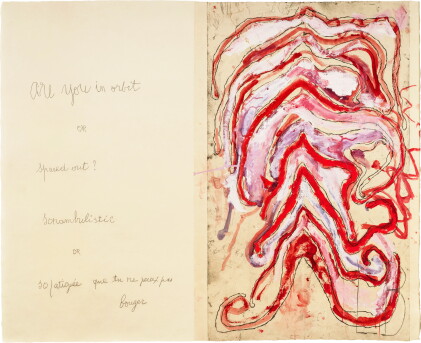 Are you in orbit
or
spread out?
sonambulistic
or
so fatiguée que tu ne peux pas
bouger